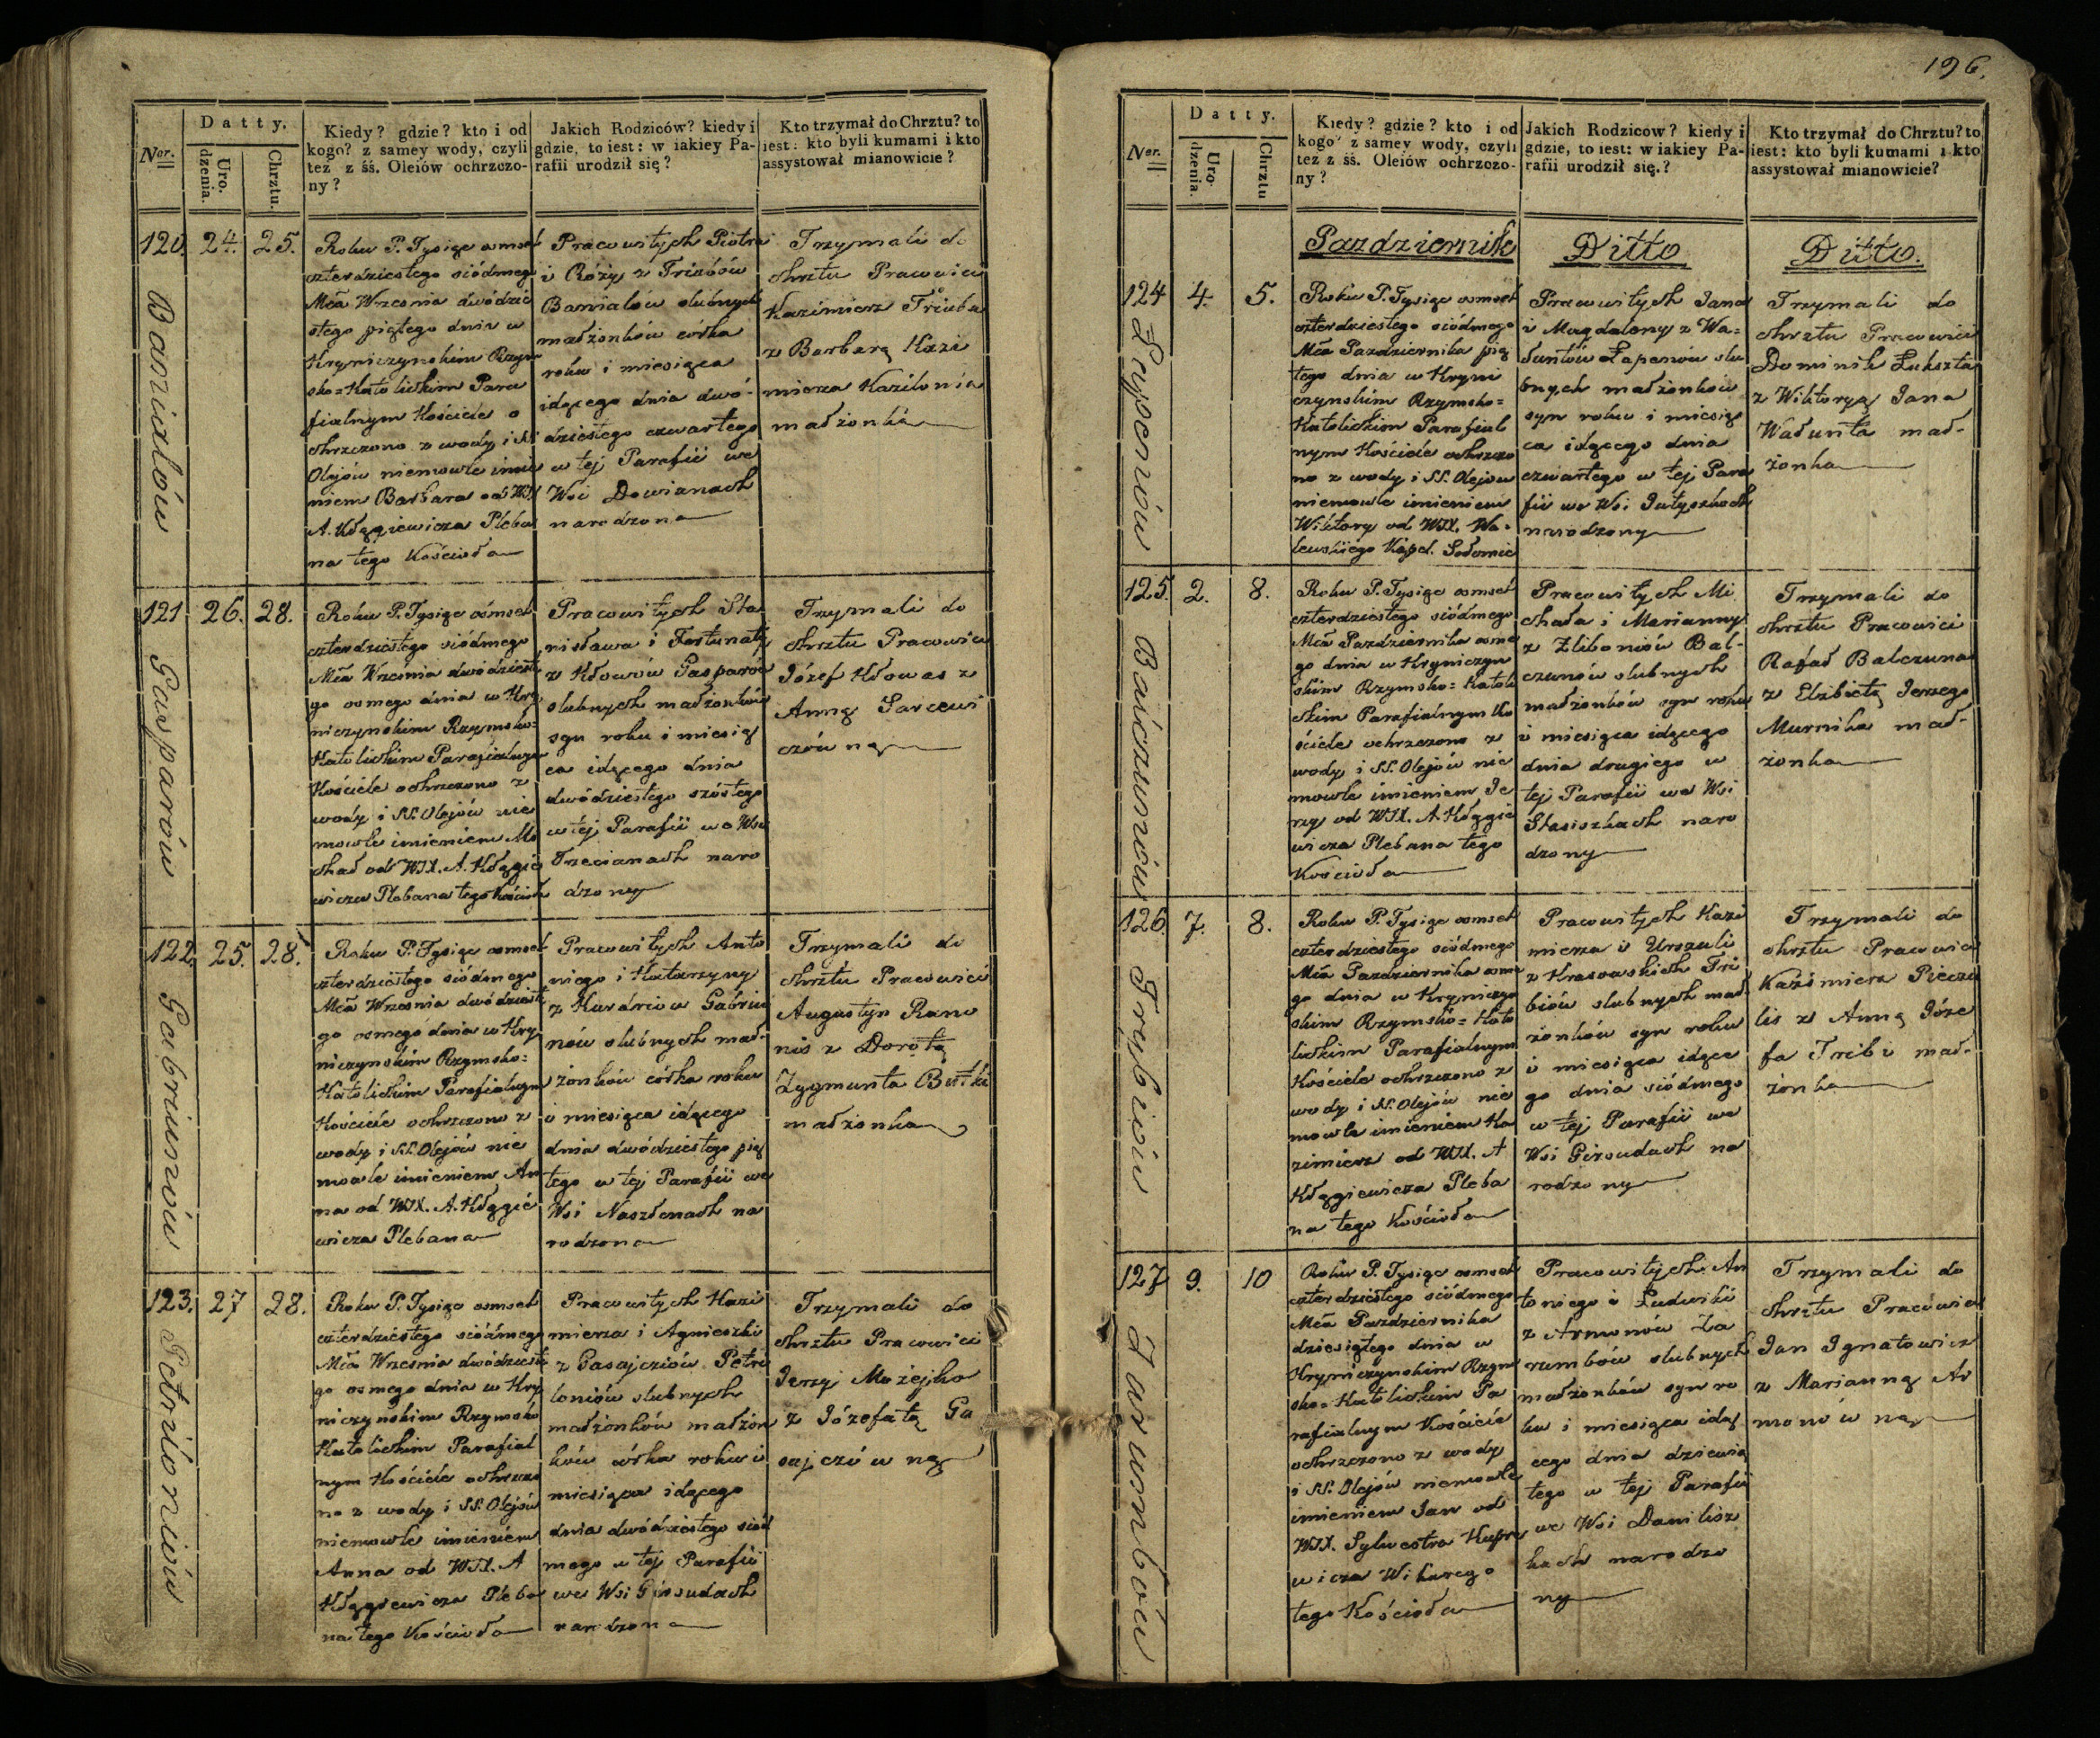 Nor.
Datty.
Uro.
dzenia.
Chrztu.
Kiedy? gdzie? kto i od
kogo? z samey wody, czyli
też z śś. Oleiów ochrzczo-
ny?
Jakich Rodziców? kiedy i
gdzie, to iest: w iakiey Pa-
rafii urodził się?
Kto trzymał do Chrztu? to
iest: kto byli kumami i kto
assystował mianowicie?
120. 24. 25.
Roku P. Tysiąc osmset
czterdziestego siódmego
Mca Wrzesnia dwódzie
stego piątego dnia w
Kryniczynskim Rzym
sko=Katolickim Para
fialnym Kościele o
chrzczono z wody i SS.
Olejów niemowle imie
niem Barbara od WJX
A. Kłągiewicza Pleba
na tego Kościoła
Pracowitych Piotra
i Róży z Triubów
Banialów slubnych
małżonków córka
roku i miesiąca
idącego dnia dwó-
dziestego czwartego
w tej Parafii we
Wsi Dowianach
narodzona
Trzymali do
chrztu Pracowici
Kazimierz Triuba
z Barbarą Kazi
mierza Kazilonia
małżonka
121 26. 28.
Gasparów
Roku P. Tysiąc osmset
czterdziestego siódmego
Mca Wrzesnia dwódzieste
go osmego dnia w Kry
niczynskim Rzymsko=
Katolickim Parafialnym
Kościele ochrzczono z
wody i SS. Olejów nie
mowle imieniem Mi
chał od WJX. A. Kłągie
wicza Plebana tego Kościoła
Pracowitych Sta
nisława i Fortunaty
z Kłowów Gasparów
slubnych małżonków
syn roku i miesią
ca idącego dnia
dwódziestego szóstego
w tej Parafii we Wsi
Trecianach naro
dzony
Trzymali do
chrztu Pracowici
Józef Kłowas z
Anną Sarcewi
czówną
122. 25. 28.
Gabriunów
Roku P. Tysiąc osmset
czterdziestego siódmego
Mca Wrzesnia dwódzieste
go osmego dnia w Kry
niczynskim Rzymsko=
Katolickim Parafialnym
Kościele ochrzczono z
wody i SS. Olejów nie
mowle imieniem An
na od WJX. A. Kłągie
wicza Plebana
Pracowitych Anto
niego i Katarzyny
z Kurdriów Gabriu
nów slubnych mał-
żonków córka roku
i miesiąca idącego
dnia dwódziestego pią
tego w tej Parafii we
Wsi Naszłenach na
rodzona
Trzymali do
chrztu Pracowici
Augustyn Rano
nis z Dorotą
Zygmunta Butki
małżonka
123. 27 28.
Petriloniów
Roku P. Tysiąc osmset
czterdziestego siódmego
Mca Wrzesnia dwódzieste
go osmego dnia w Kry
niczynskim Rzymsko
Katolickim Parafial
nym Kościele ochrzczo
no z wody i SS. Olejów
niemowle imieniem
Anna od WJX. A
Kłągiewicza Pleba
na tego Kościoła
Pracowitych Kazi
mierza i Agnieszki
z Gasajcziów Petri
loniów slubnych
małżonków małżon
ków córka roku i
miesiąca idącego
dnia dwódziestego siód
mego w tej Parafii
we Wsi Girsudach
narodzona
Trzymali do
chrztu Pracowici
Jerzy Możejko
z Józefatą Ga
sajczówną
196.
Nor.
Datty.
Uro.
dzenia.
Chrztu
Kiedy? gdzie? kto i od
kogo? z samey wody, czyli
też z śś. Oleiów ochrzczo-
ny?
Jakich Rodziców? kiedy i
gdzie, to iest: w iakiey Pa-
rafii urodził się.?
Kto trzymał do Chrztu? to
iest: kto byli kumami i kto
assystował mianowicie?
Pazdziernik
Ditto
Ditto.
124 4. 5.
Łapenów
Roku P. Tysiąc osmset
czterdziestego siódmego
Mca Pazdziernika pią
tego dnia w Kryni
czynskim Rzymsko=
Katolickim Parafial
nym Kościele ochrzczo
no z wody i SS. Olejów
niemowle imieniem
Wiktory od WJX. Wa-
lewskiego Kapel.
Pracowitych Jana
i Magdaleny z Wa=
łuntów Łapenów slu
bnych małżonków
syn roku i miesią
ca idącego dnia
czwartego w tej Para
fii we Wsi Jutyszkach
narodzony
Trzymali do
chrztu Pracowici
Dominik Łukszta
z Wiktoryą Jana
Wałunta mał-
żonka
125. 2. 8.
Balczunów
Roku P. Tysiąc osmset
czterdziestego siódmego
Mca Pazdziernika osme
go dnia w Kryniczyn
skim Rzymsko=Katoli
ckim Parafialnym Ko
ściele ochrzczono z
wody i SS. Olejów nie
mowle imieniem Je
rzy od WJX. A. Kłągie
wicza Plebana tego
Kościoła
Pracowitych Mi
chała i Marianny
z Zliboniów Bal-
czunów slubnych
małżonków syn roku
i miesiąca idącego
dnia drugiego w
tej Parafii we Wsi
Stasiszkach naro
dzony
Trzymali do
chrztu Pracowici
Rafał Balczunas
z Elzbietą Jerzego
Murnika mał-
żonka
126. 7. 8.
Treibiów
Roku P. Tysiąc osmset
czterdziestego siódmego
Mca Pazdziernika osme
go dnia w Kryniczyn
skim Rzymsko=Kato
lickim Parafialnym
Kościele ochrzczono z
wody i SS. Olejów nie
mowle imieniem Ka
zimierz od WJX. A
Kłągiewicza Pleba
na tego Kościoła
Pracowitych Kazi
mierza i Urszuli
z Krasowskich Tri
biów slubnych mał
żonków syn roku
i miesiąca idące
go dnia siódmego
w tej Parafii we
Wsi Girsudach na
rodzony
Trzymali do
chrztu Pracowici
Kazimierz Pieczu
lis z Anną Józe
fa Treibi mał-
żonka
127 9. 10
Zarumbów
Roku P. Tysiąc osmset
czterdziestego siódmego
Mca Pazdziernika
dziesiątego dnia w
Kryniczynskim Rzym
sko=Katolickim Pa
rafialnym Kościele
ochrzczono z wody
i SS. Olejów niemowle
imieniem Jan od
WJX. Sylwestra Kupre
wicza Wikarego
tego Kościoła
Pracowitych An
toniego i Ludwiki
z Armonów Za
rumbów slubnych
małżonków syn ro
ku i miesiąca idą
cego dnia dziewią
tego w tej Parafii
we Wsi Danilisz
kach narodzo
ny
Trzymali do
chrztu Pracowici
Jan Ignatowicz
z Marianną Ar
monówną